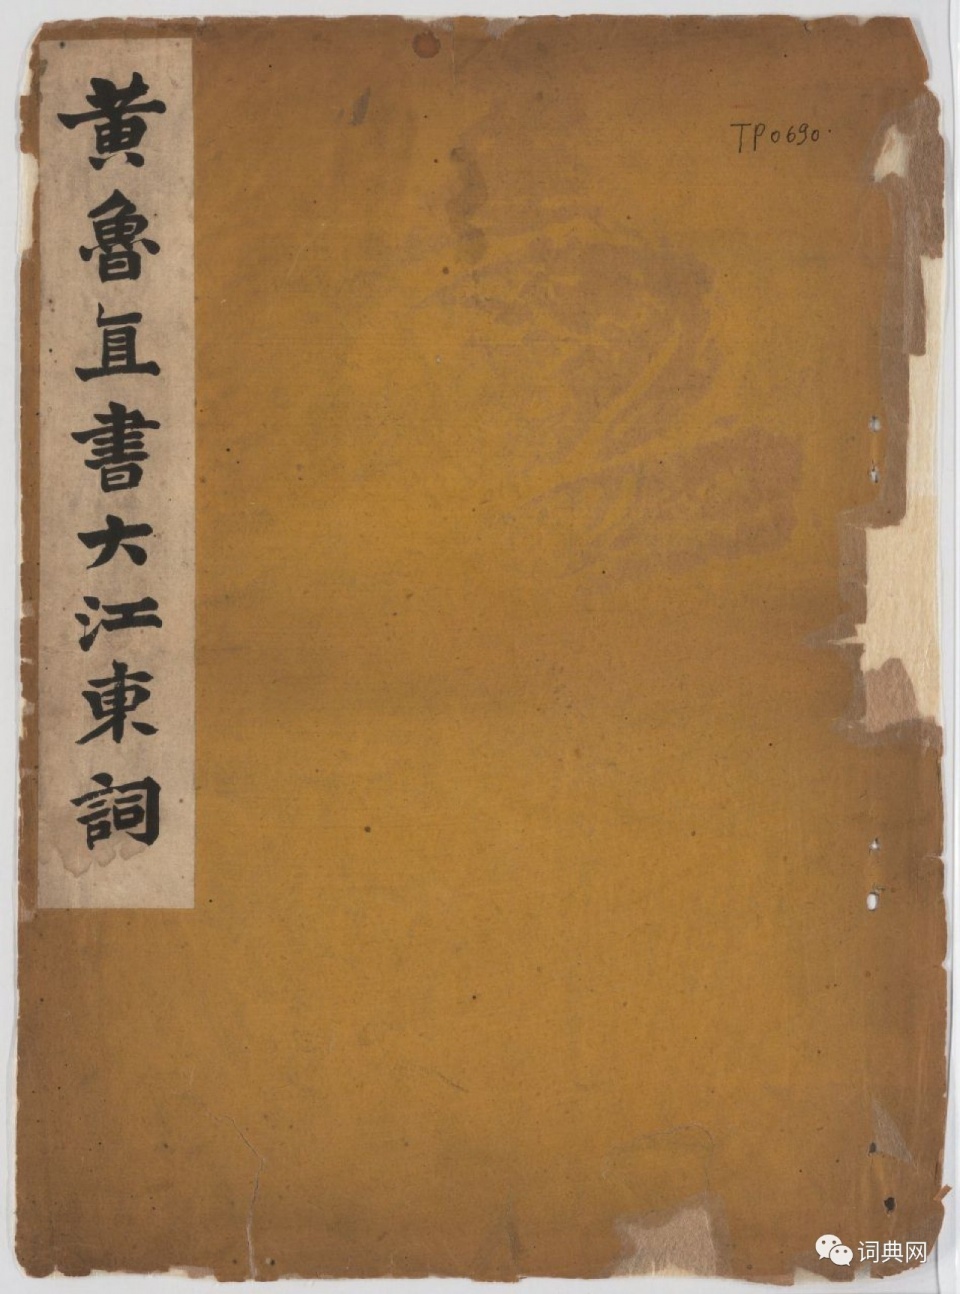 黄魯直書大江東詞
TP0690.
词典网